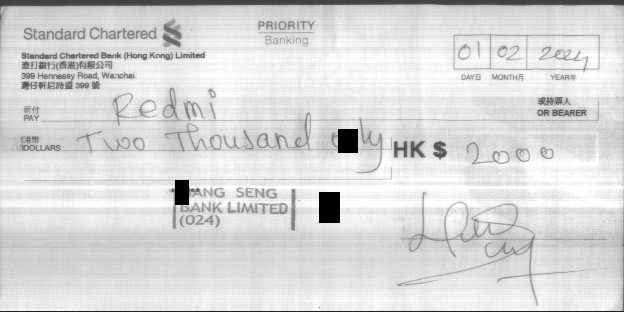 Standard Chartered
PRIORITY
Banking
Standard Chartered Bank (Hong Kong) Limited
渣打銀行(香港)有限公司
399 Hennessy Road, Wanchai
灣仔軒尼詩道 399 號
01 02 2024
DAY日 MONTH月 YEAR年
祈付
PAY Redmi
或持票人
OR BEARER
港幣
DOLLARS Two Thousand
HK $ 2000
ANG SENG
BANK LIMITED
(024)